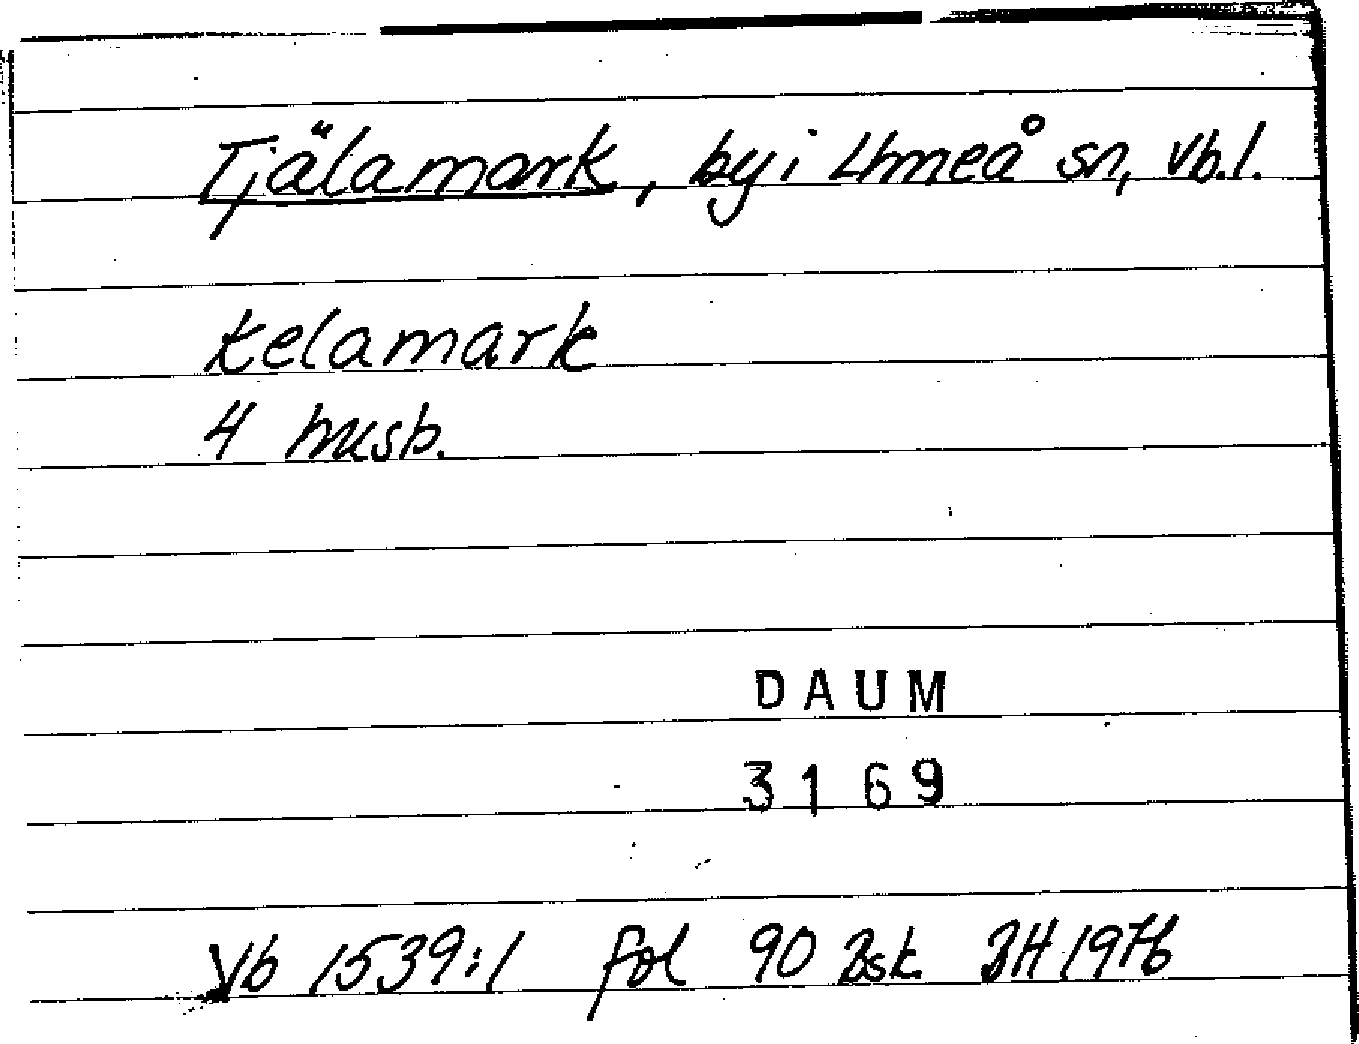 Tjälamark, by i Umeå sn, Vb.l.
kelamark
4 husb.
DAUM
3169
Vb 1539:1 fol 90 Bsk. BH 1976